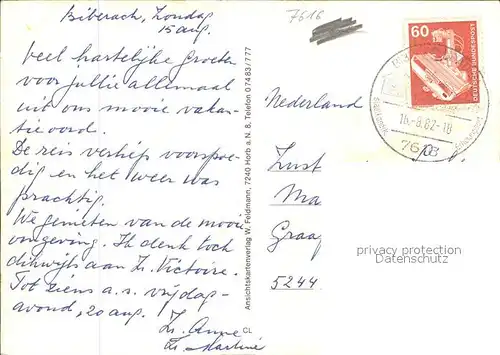 Biberach, Zondag
15 aug.
Veel hartelijke Groeten
voor jullie allemaal
uit ons mooie vakan-
tie oord.
De reis verliep voorspoe-
dig en het weer was
prachtig.
We genieten van de mooie
omgeving. Ik denk toch
dikwijls aan Zr. Victoire.
Tot ziens a.s. vrijdag-
avond, 20 aug.
Zr. Anne
Zr. Martine
CL
Ansichtskartenverlag W. Feldmann, 7240 Horb a. N. 8, Telefon 0 74 83 / 7 77
7616
60
DEUTSCHE BUNDESPOST
16.-8.82-18
7616
Nederland
Zust
Ma
Graa
5244
privacy protection
Datenschutz